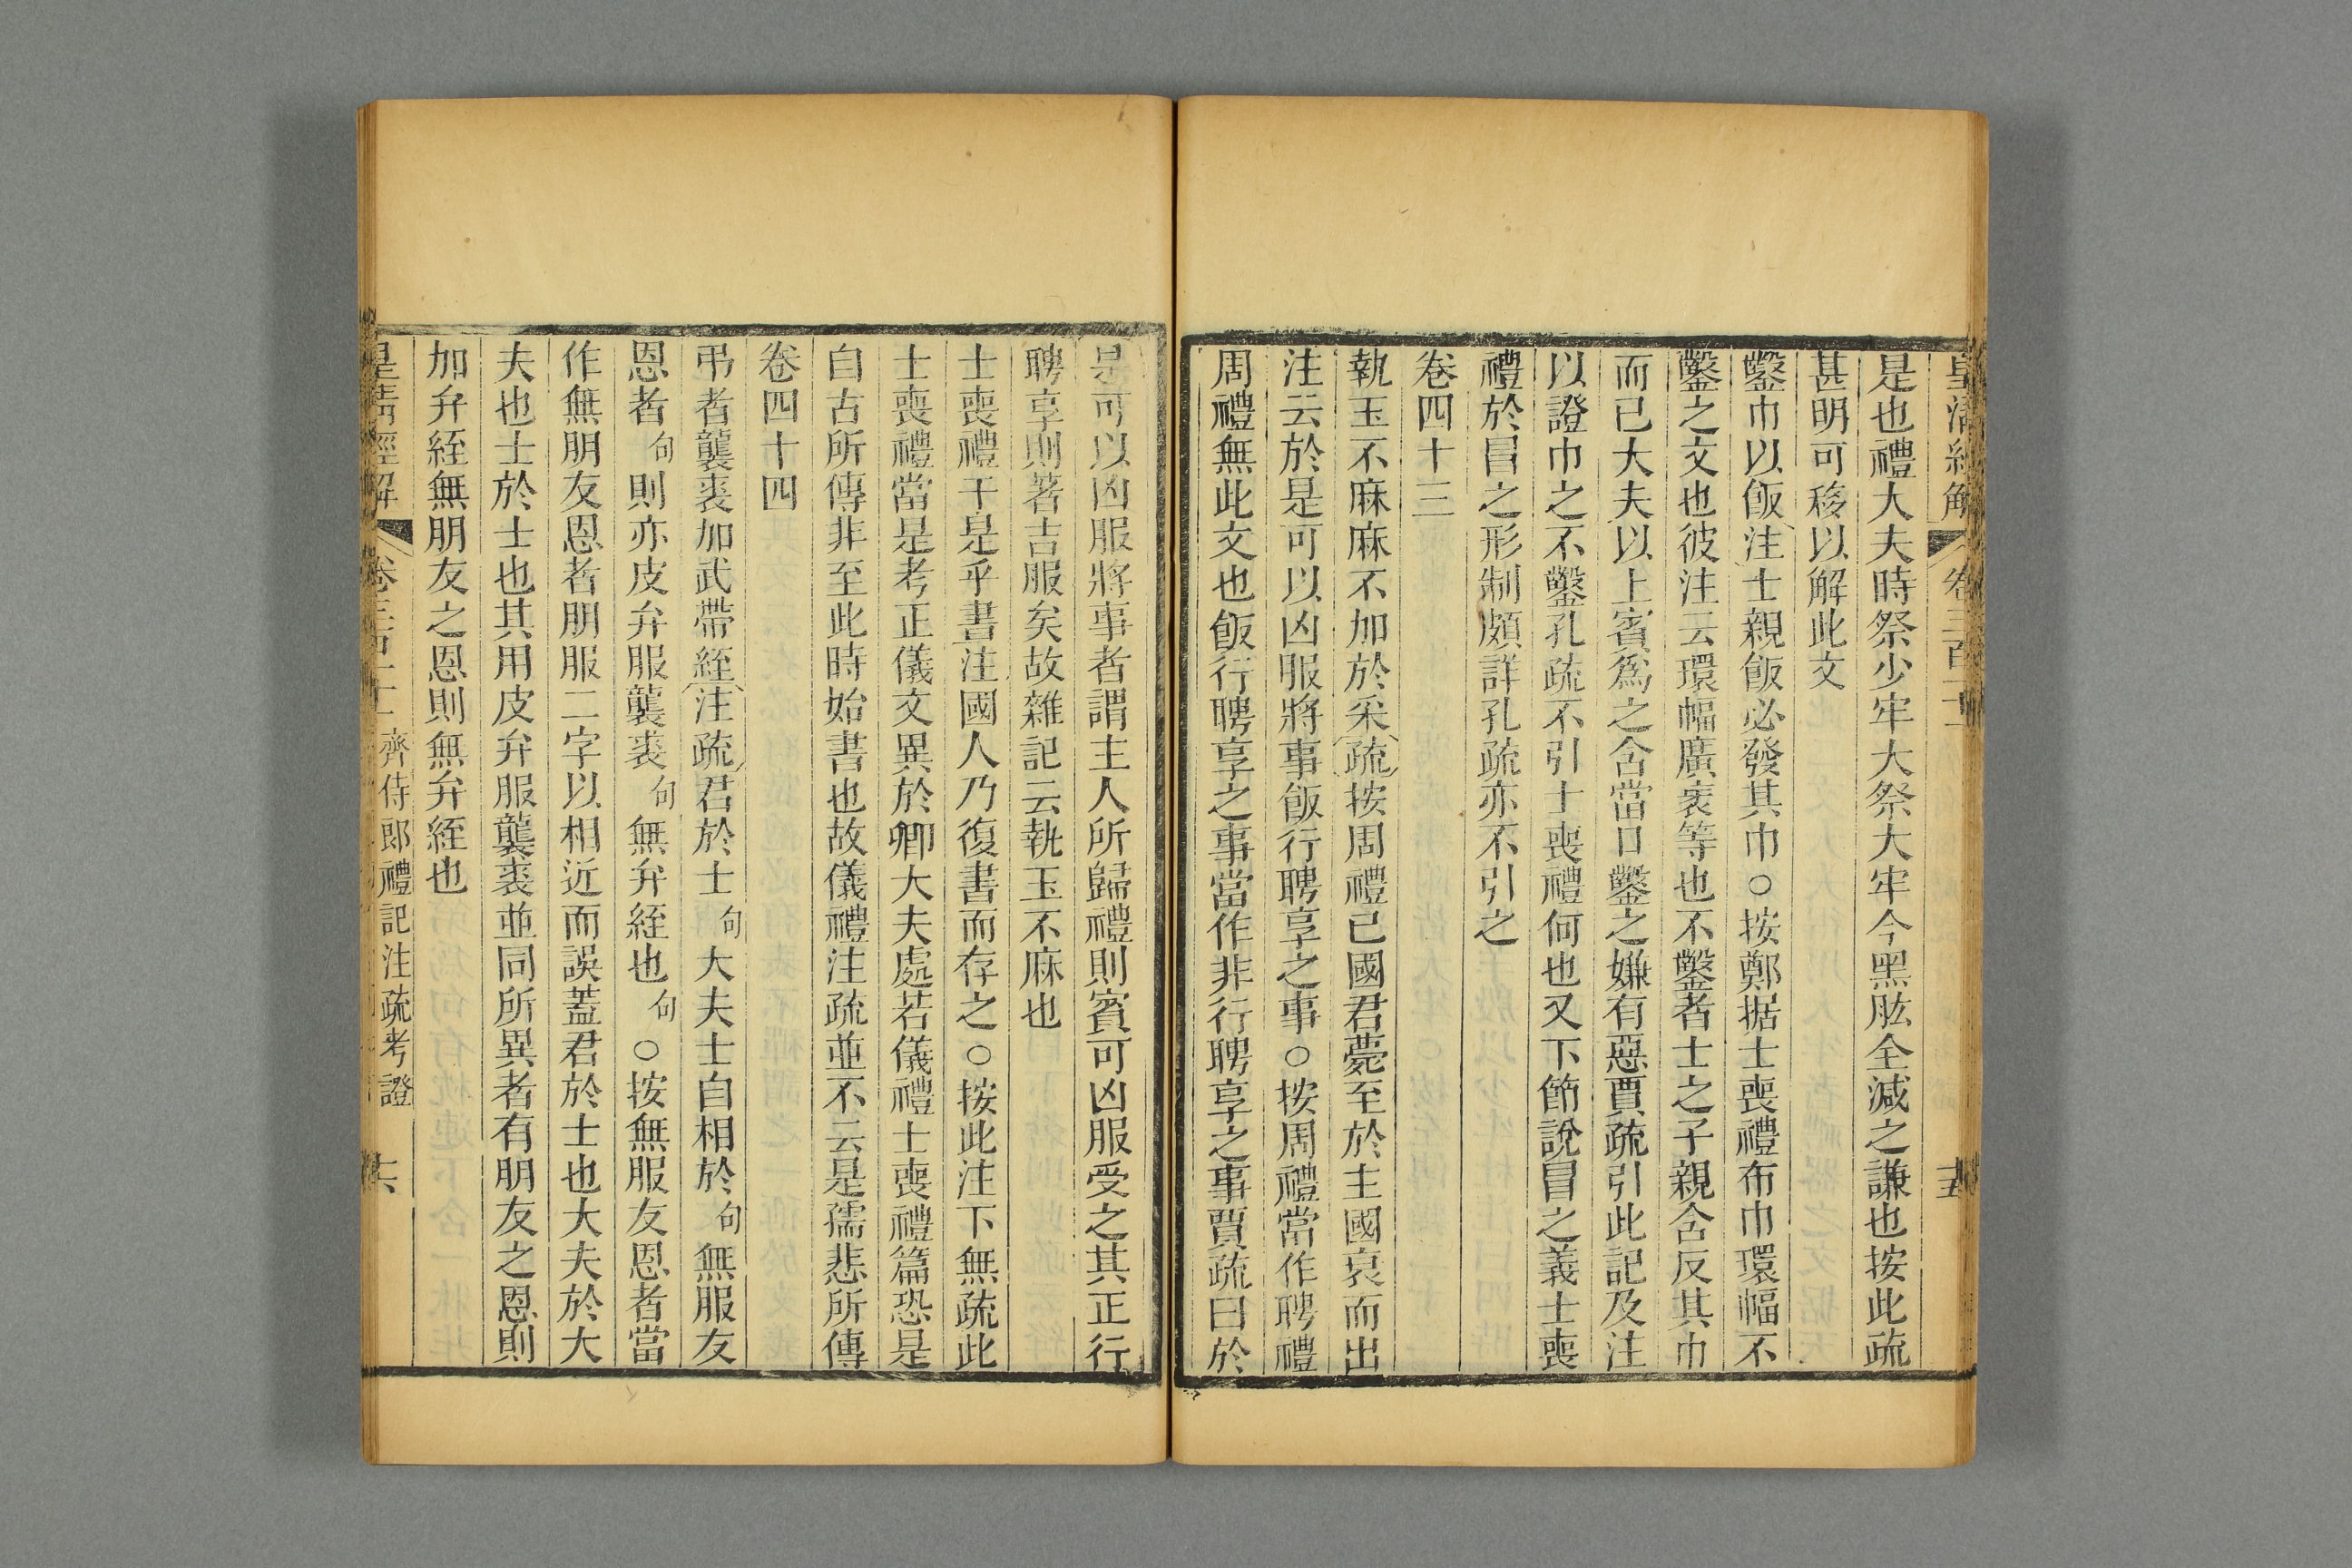 皇清經解 卷三百十二 十五
是也禮大夫時祭少牢大祭大牢今黑肱全減之謙也按此疏
甚明可移以解此文
鑿巾以飯注士親飯必發其巾○按鄭据士喪禮布巾環幅不
鑿之文也彼注云環幅廣袤等也不鑿者士之子親含反其巾
而已大夫以上賓爲之含當口鑿之嫌有惡賈疏引此記及注
以證巾之不鑿孔疏不引士喪禮何也又下節說冒之義士喪
禮於冒之形制頗詳孔疏亦不引之
卷四十三
執玉不麻麻不加於采疏按周禮已國君薨至於主國衰而出
注云於是可以凶服將事飯行聘享之事○按周禮當作聘禮
周禮無此文也飯行聘享之事當作非行聘享之事賈疏曰於
是可以凶服將事者謂主人所歸禮則賓可凶服受之其正行
聘享則著吉服矣故雜記云執玉不麻也
士喪禮于是乎書注國人乃復書而存之○按此注下無疏此
士喪禮當是考正儀文異於卿大夫處若儀禮士喪禮篇恐是
自古所傳非至此時始書也故儀禮注疏並不云是孺悲所傳
卷四十四
弔者襲裘加武帶絰注疏君於士句大夫士自相於句無服友
恩者句則亦皮弁服襲裘句無弁絰也句○按無服友恩者當
作無朋友恩者朋服二字以相近而誤蓋君於士也大夫於大
夫也士於士也其用皮弁服襲裘並同所異者有朋友之恩則
加弁絰無朋友之恩則無弁絰也
皇清經解 卷三百十二 齊侍郎禮記注疏考證 十六